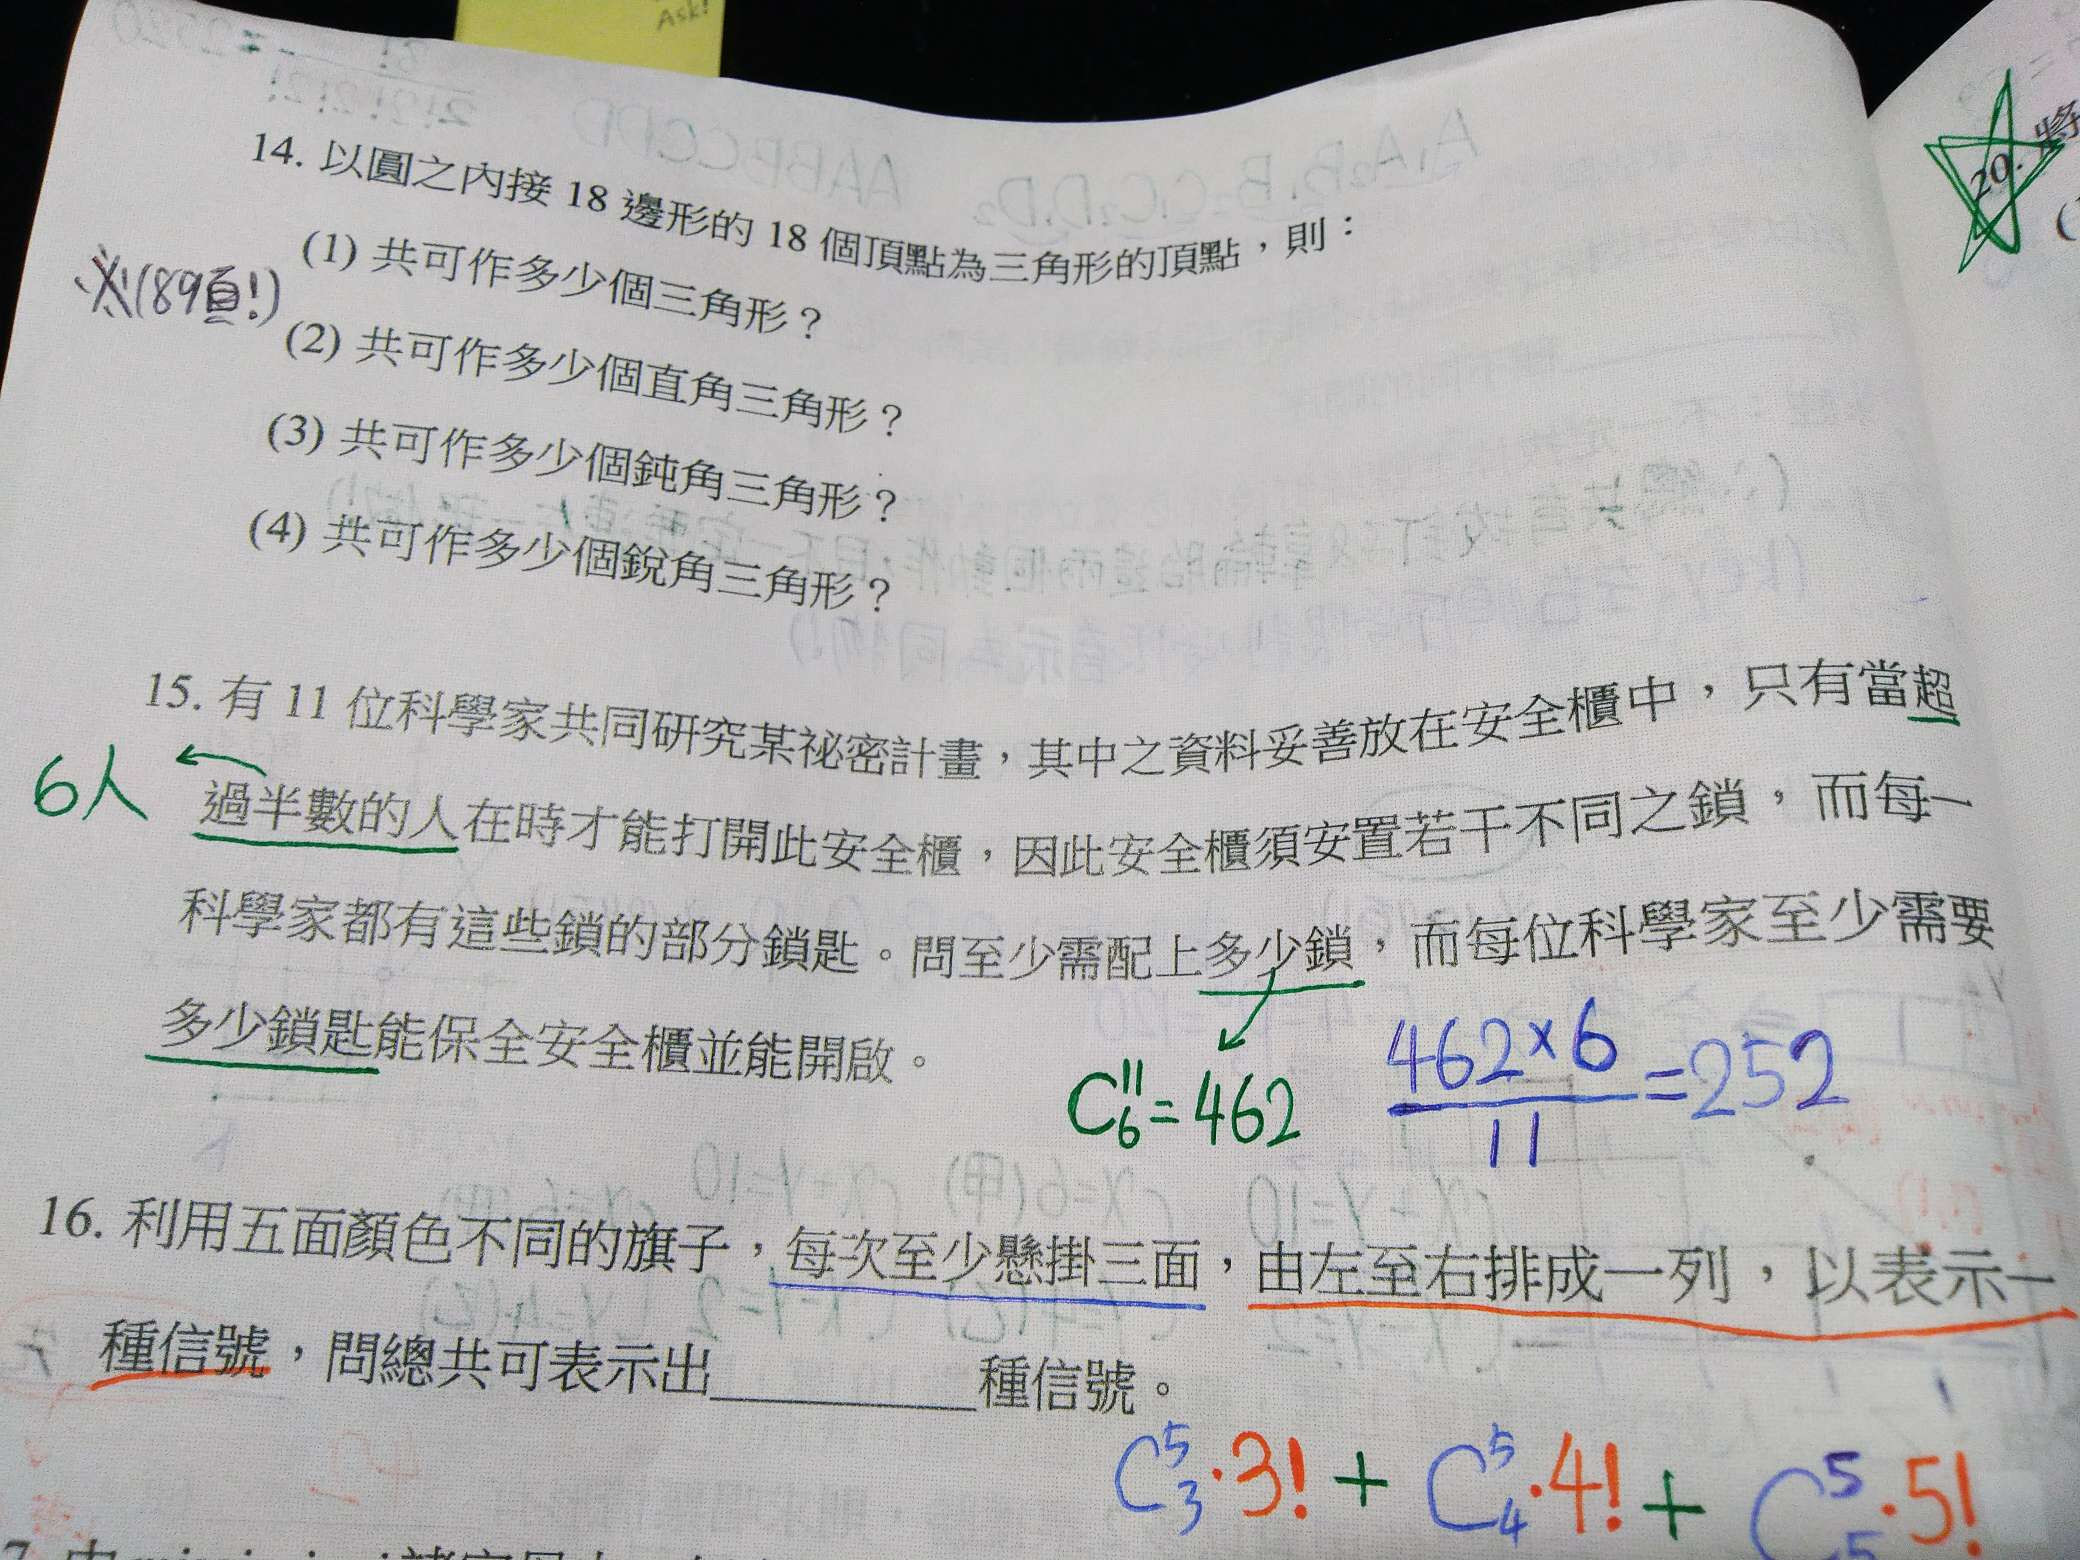 Ask!
14. 以圓之內接 18 邊形的 18 個頂點為三角形的頂點，則：
※(89頁!)
(1) 共可作多少個三角形？
(2) 共可作多少個直角三角形？
(3) 共可作多少個鈍角三角形？
(4) 共可作多少個銳角三角形？
20. 將
15. 有 11 位科學家共同研究某祕密計畫，其中之資料妥善放在安全櫃中，只有當超
6人
過半數的人在時才能打開此安全櫃，因此安全櫃須安置若干不同之鎖，而每一
科學家都有這些鎖的部分鎖匙。問至少需配上多少鎖，而每位科學家至少需要
多少鎖匙能保全安全櫃並能開啟。
C¹¹₆=462
462×6/11=252
16. 利用五面顏色不同的旗子，每次至少懸掛三面，由左至右排成一列，以表示一
種信號，問總共可表示出＿＿＿＿＿種信號。
C⁵₃·3!+C⁵₄·4!+C⁵₅·5!